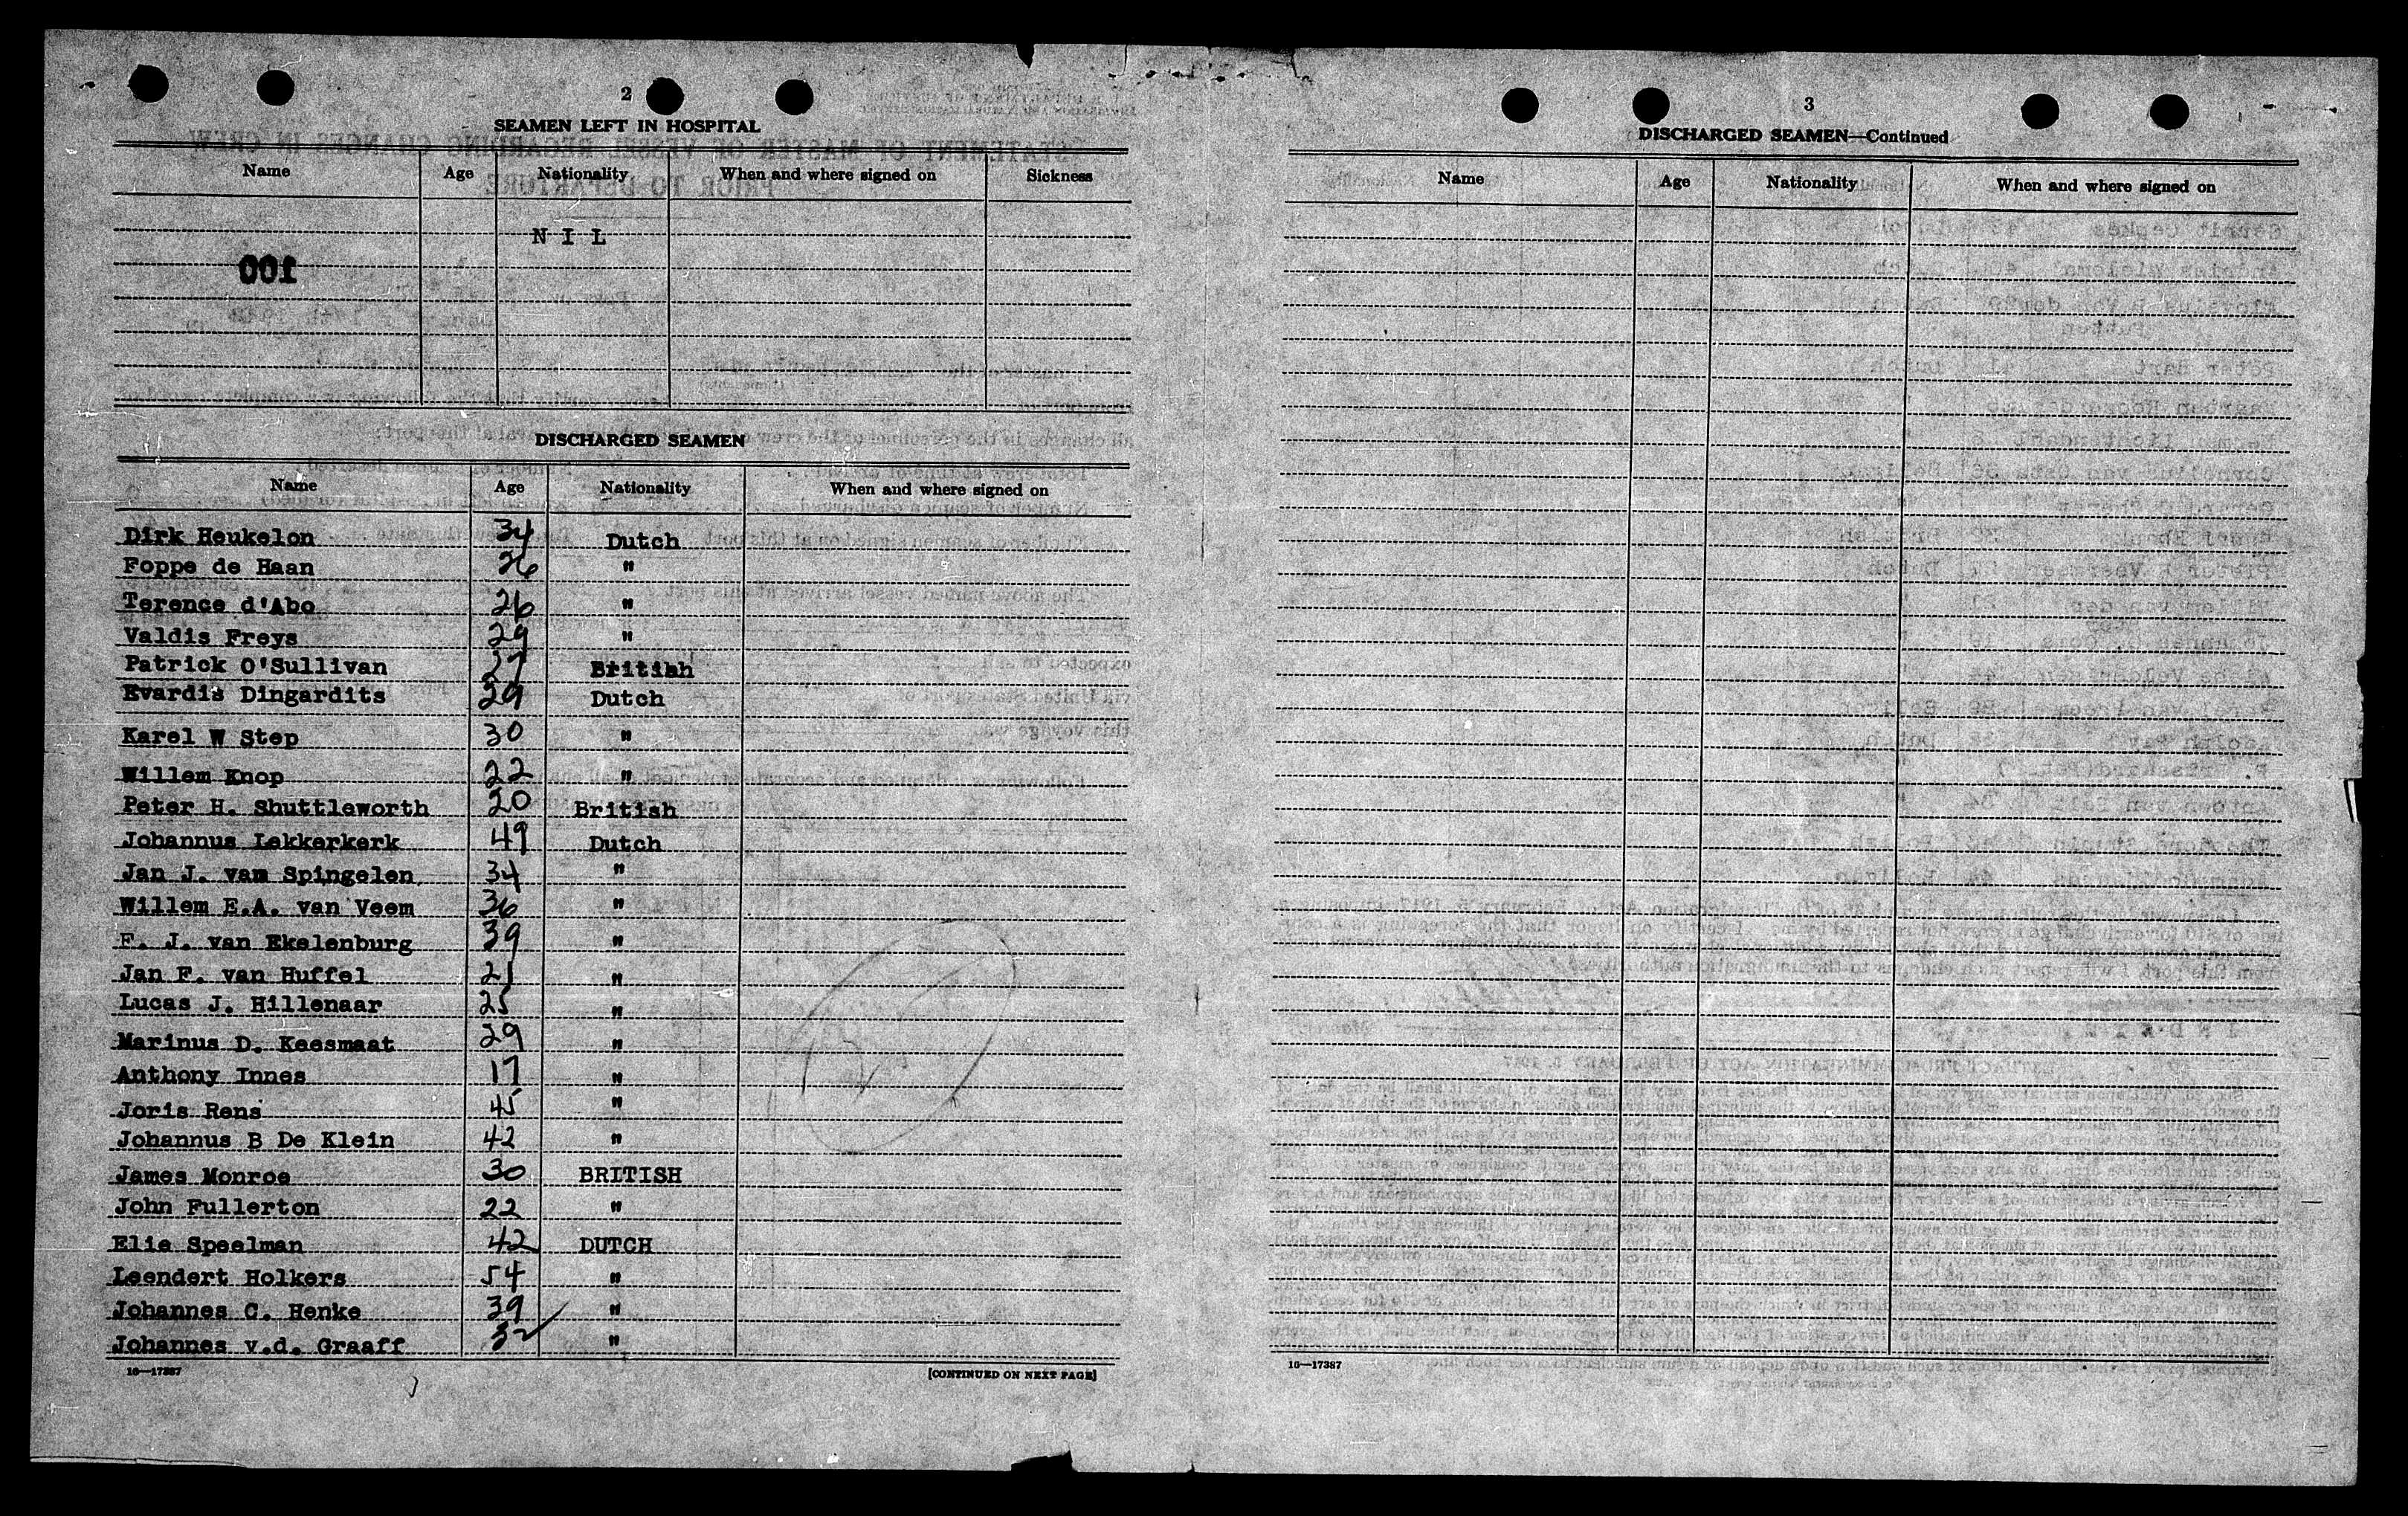 2
SEAMEN LEFT IN HOSPITAL
Name Age Nationality When and where signed on Sickness
N I L
001
DISCHARGED SEAMEN
Name Age Nationality When and where signed on
Dirk Heukelon 34 Dutch
Foppe de Haan 26 "
Terence d'Abo 26 "
Valdis Freys 29 "
Patrick O'Sullivan 27 British
Evardis Dingardits 29 Dutch
Karel W Step 30 "
Willem Knop 22 "
Peter H. Shuttleworth 20 British
Johannus Lekkerkerk 49 Dutch
Jan J. van Spingelen 34 "
Willem E.A. van Veem 36 "
F. J. van Ekelenburg 39 "
Jan F. van Huffel 21 "
Lucas J. Hillenaar 25 "
Marinus D. Keesmaat 29 "
Anthony Innes 17 "
Joris Rens 45 "
Johannus B De Klein 42 "
James Monroe 30 BRITISH
John Fullerton 22 "
Elie Speelman 42 DUTCH
Leendert Holkers 54 "
Johannes C. Henke 39 "
Johannes v.d. Graaff 32 "
16—17387
[CONTINUED ON NEXT PAGE]
3
DISCHARGED SEAMEN—Continued
Name Age Nationality When and where signed on
16—17387